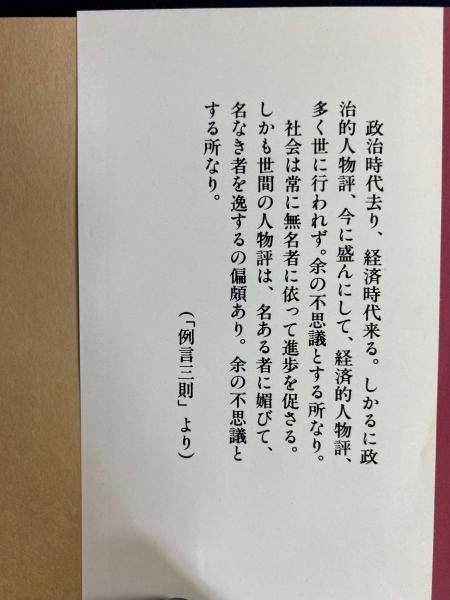 政治時代去り、経済時代来る。しかるに政
治的人物評、今に盛んにして、経済的人物評、
多く世に行われず。余の不思議とする所なり。
社会は常に無名者に依って進歩を促さる。
しかも世間の人物評は、名ある者に媚びて、
名なき者を逸するの偏頗あり。余の不思議と
する所なり。
（「例言三則」より）